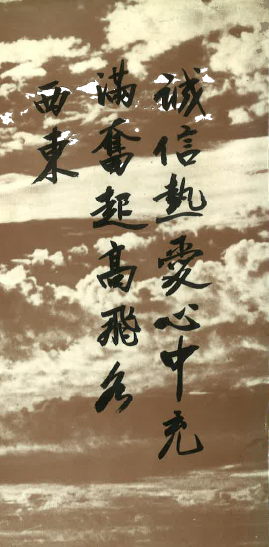 誠信熱愛心中充
滿奮起高飛各
西東